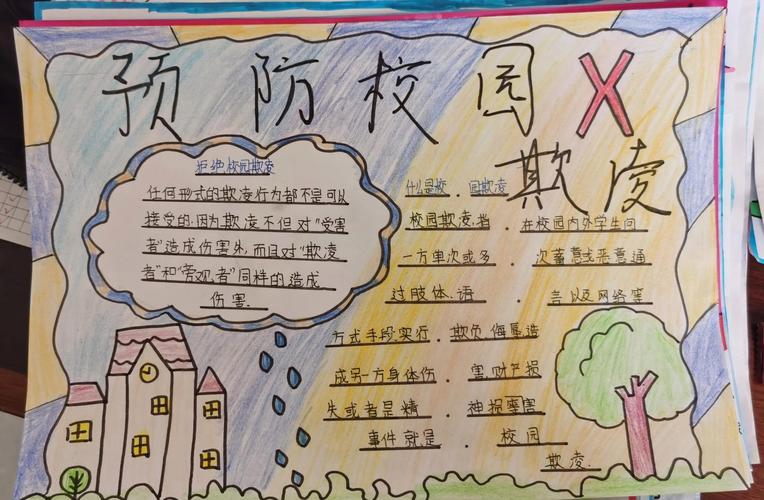 预防校园
欺凌
拒绝校园欺凌
任何形式的欺凌行为都不是可以
接受的.因为欺凌不但对"受害
者"造成伤害外,而且对"欺凌
者"和"旁观者"同样的造成
伤害.
什么是校.园欺凌
校园欺凌,指.在校园内外学生间
一方单次或多.次蓄意或恶意通
过肢体、语.言以及网络等
方式手段,实行.欺负、侮辱造
成另一方身体伤.害、财产损
失或者是精.神损害
事件就是.校园
欺凌.